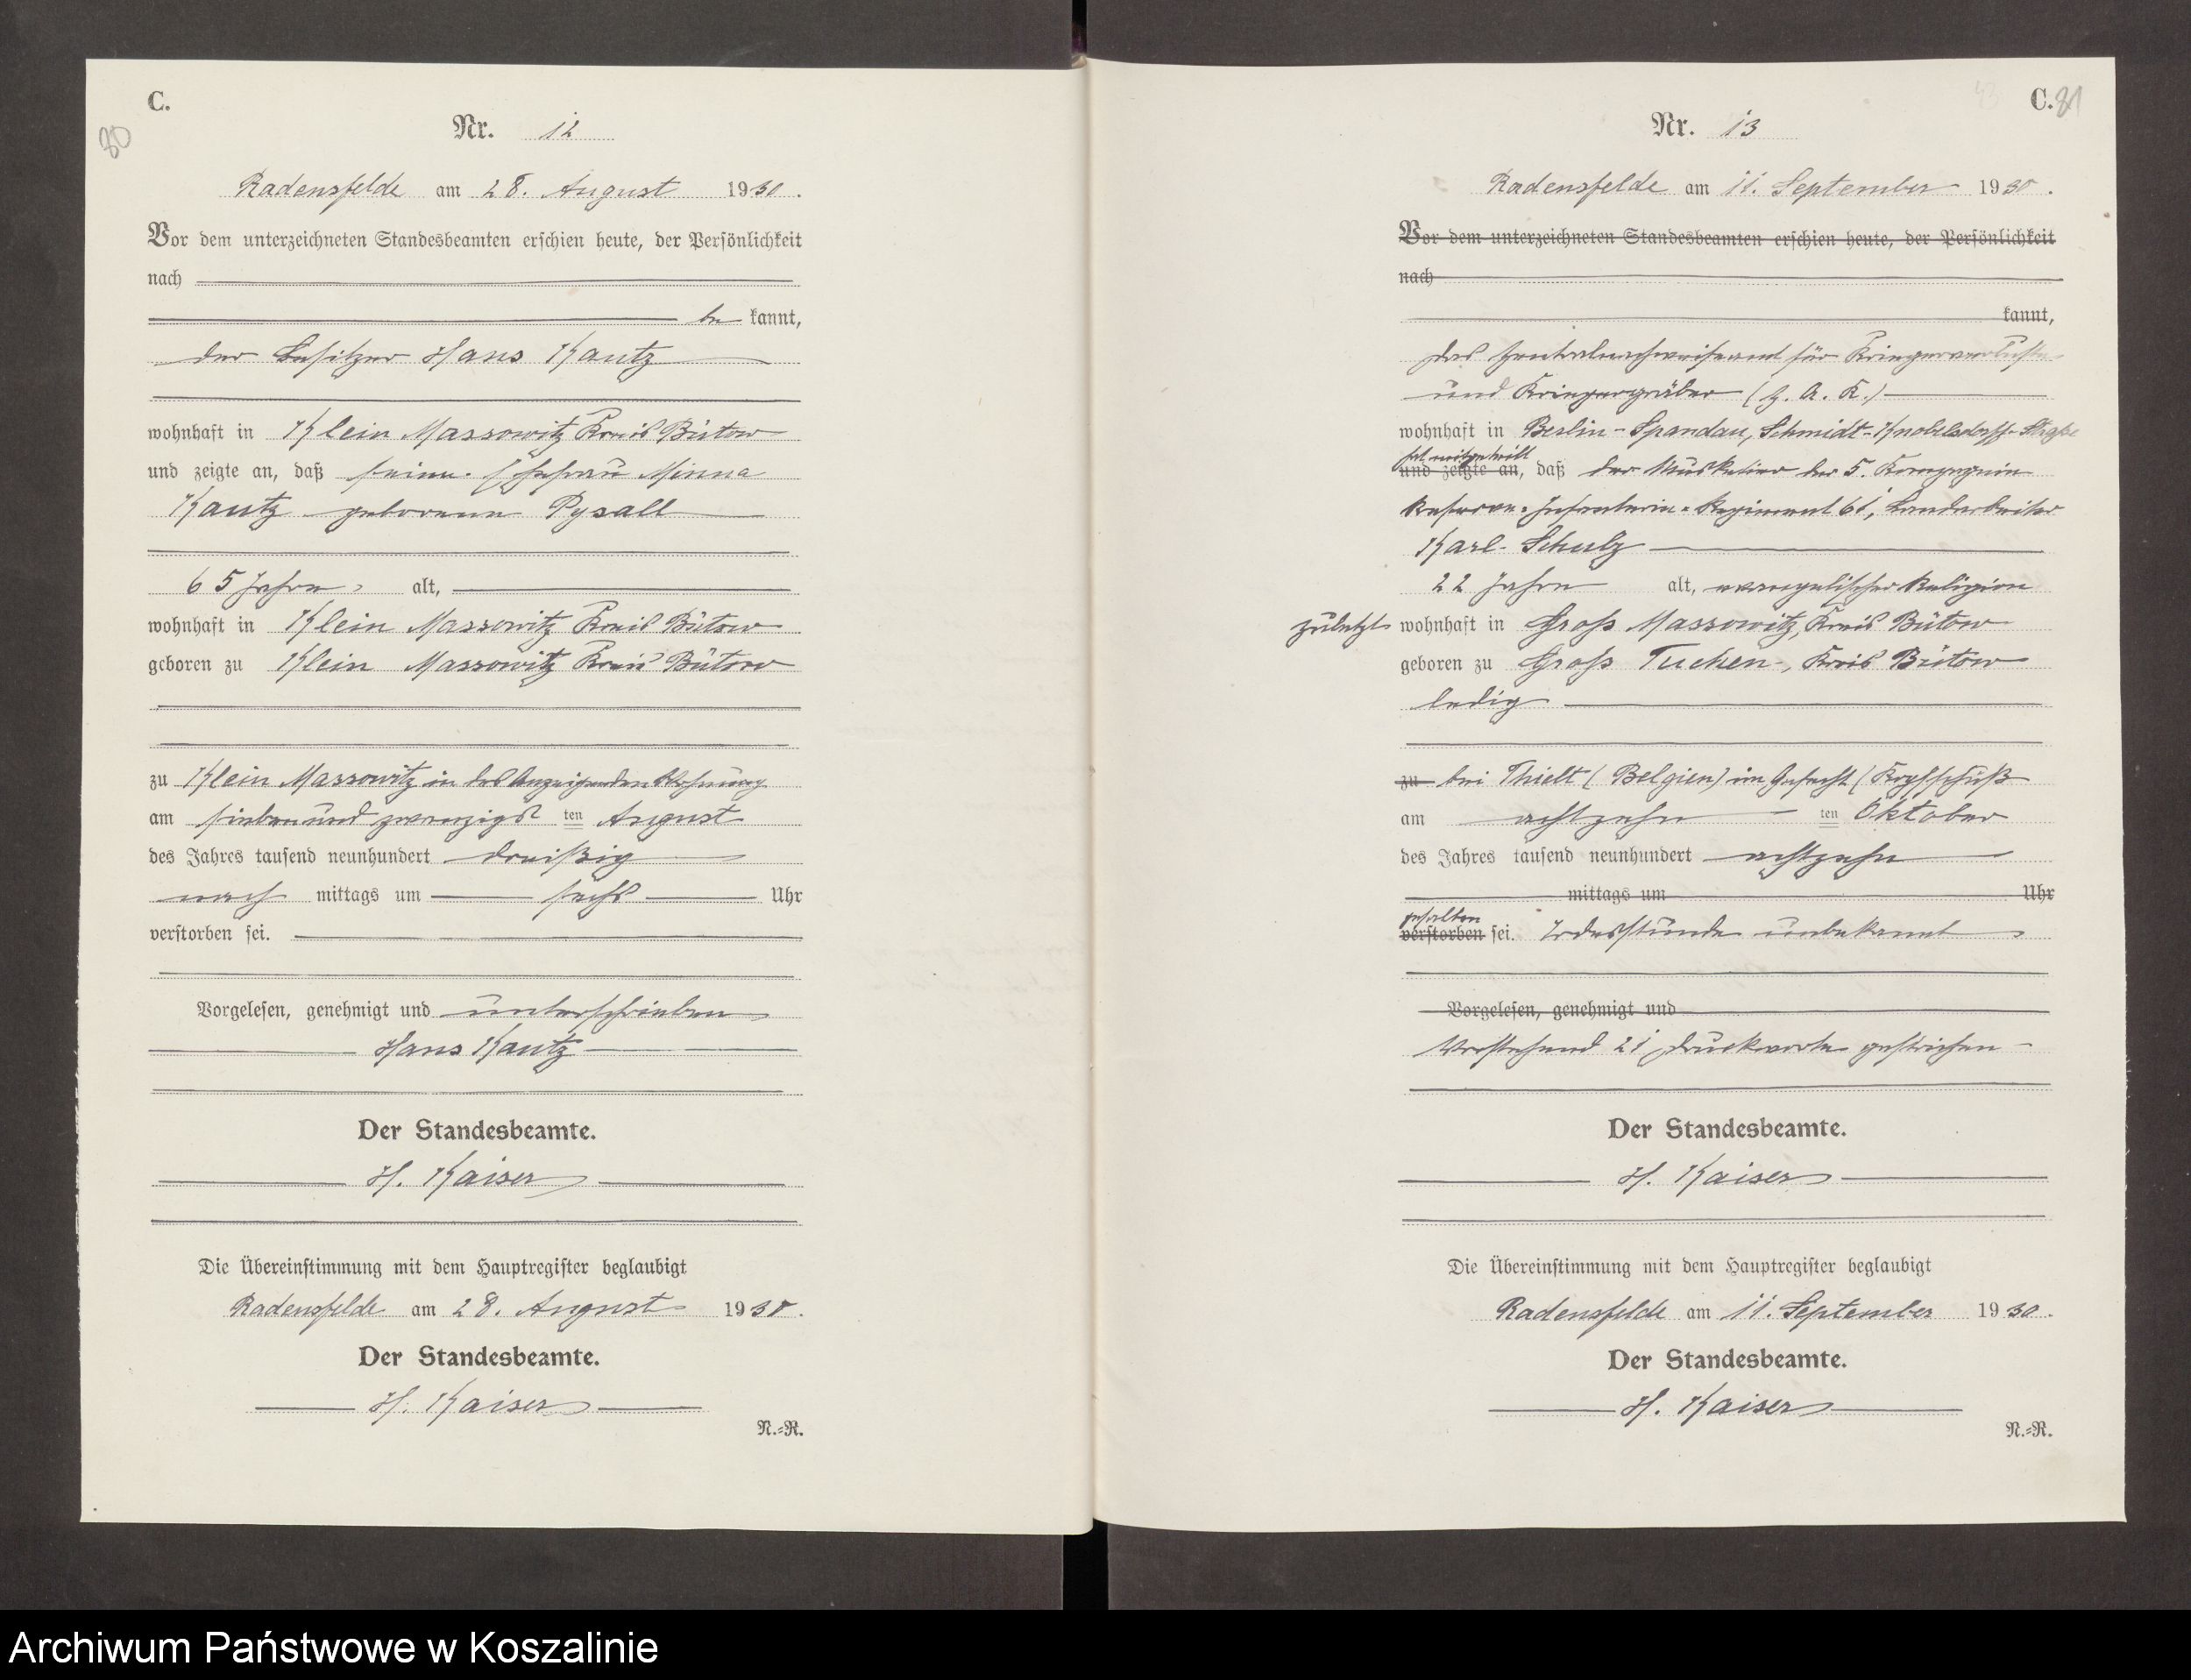 C.
80
Nr. 12
Radensfelde am 28. August 1930.
Vor dem unterzeichneten Standesbeamten erschien heute, der Persönlichkeit
nach
be kannt,
der Besitzer Hans Kautz
wohnhaft in Klein Massowitz Kreis Bütow
und zeigte an, daß seine Ehefrau Minna
Kautz geborene Pysall
65 Jahre alt,
wohnhaft in Klein Massowitz Kreis Bütow
geboren zu Klein Massowitz Kreis Bütow
zu Klein Massowitz in des Anzeigenden Wohnung
am siebenundzwanzigsten August
des Jahres tausend neunhundert dreißig
nach mittags um sechs Uhr
verstorben sei.
Vorgelesen, genehmigt und unterschrieben
Hans Kautz
Der Standesbeamte.
H. Kaiser
Die Übereinstimmung mit dem Hauptregister beglaubigt
Radensfelde am 28. August 1930.
Der Standesbeamte.
H. Kaiser
N.=R.
C. 81
Nr. 13
Radensfelde am 11. September 1930.
Vor dem unterzeichneten Standesbeamten erschien heute, der Persönlichkeit
nach
kannt,
Das Zentralnachweiseamt für Kriegerverluste
und Kriegergräber (Z. A. K.)
wohnhaft in Berlin-Spandau, Schmidt-Knobelsdorff-Straße
hat mitgeteilt
und zeigte an, daß der Musketier der 5. Kompagnie
Reserve-Infanterie-Regiment 61, Landarbeiter
Karl Schulz
22 Jahre alt, evangelischer Religion
zuletzt wohnhaft in Groß Massowitz, Kreis Bütow
geboren zu Groß Tuchen, Kreis Bütow
ledig
zu bei Thielt (Belgien) im Gefecht (Kopfschuß
am achtzehnten Oktober
des Jahres tausend neunhundert achtzehn
mittags um Uhr
gefallen
verstorben sei. Todesstunde unbekannt
Vorgelesen, genehmigt und
Vorstehend 21 Druckworte gestrichen
Der Standesbeamte.
H. Kaiser
Die Übereinstimmung mit dem Hauptregister beglaubigt
Radensfelde am 11. September 1930.
Der Standesbeamte.
H. Kaiser
N.=R.
Archiwum Państwowe w Koszalinie